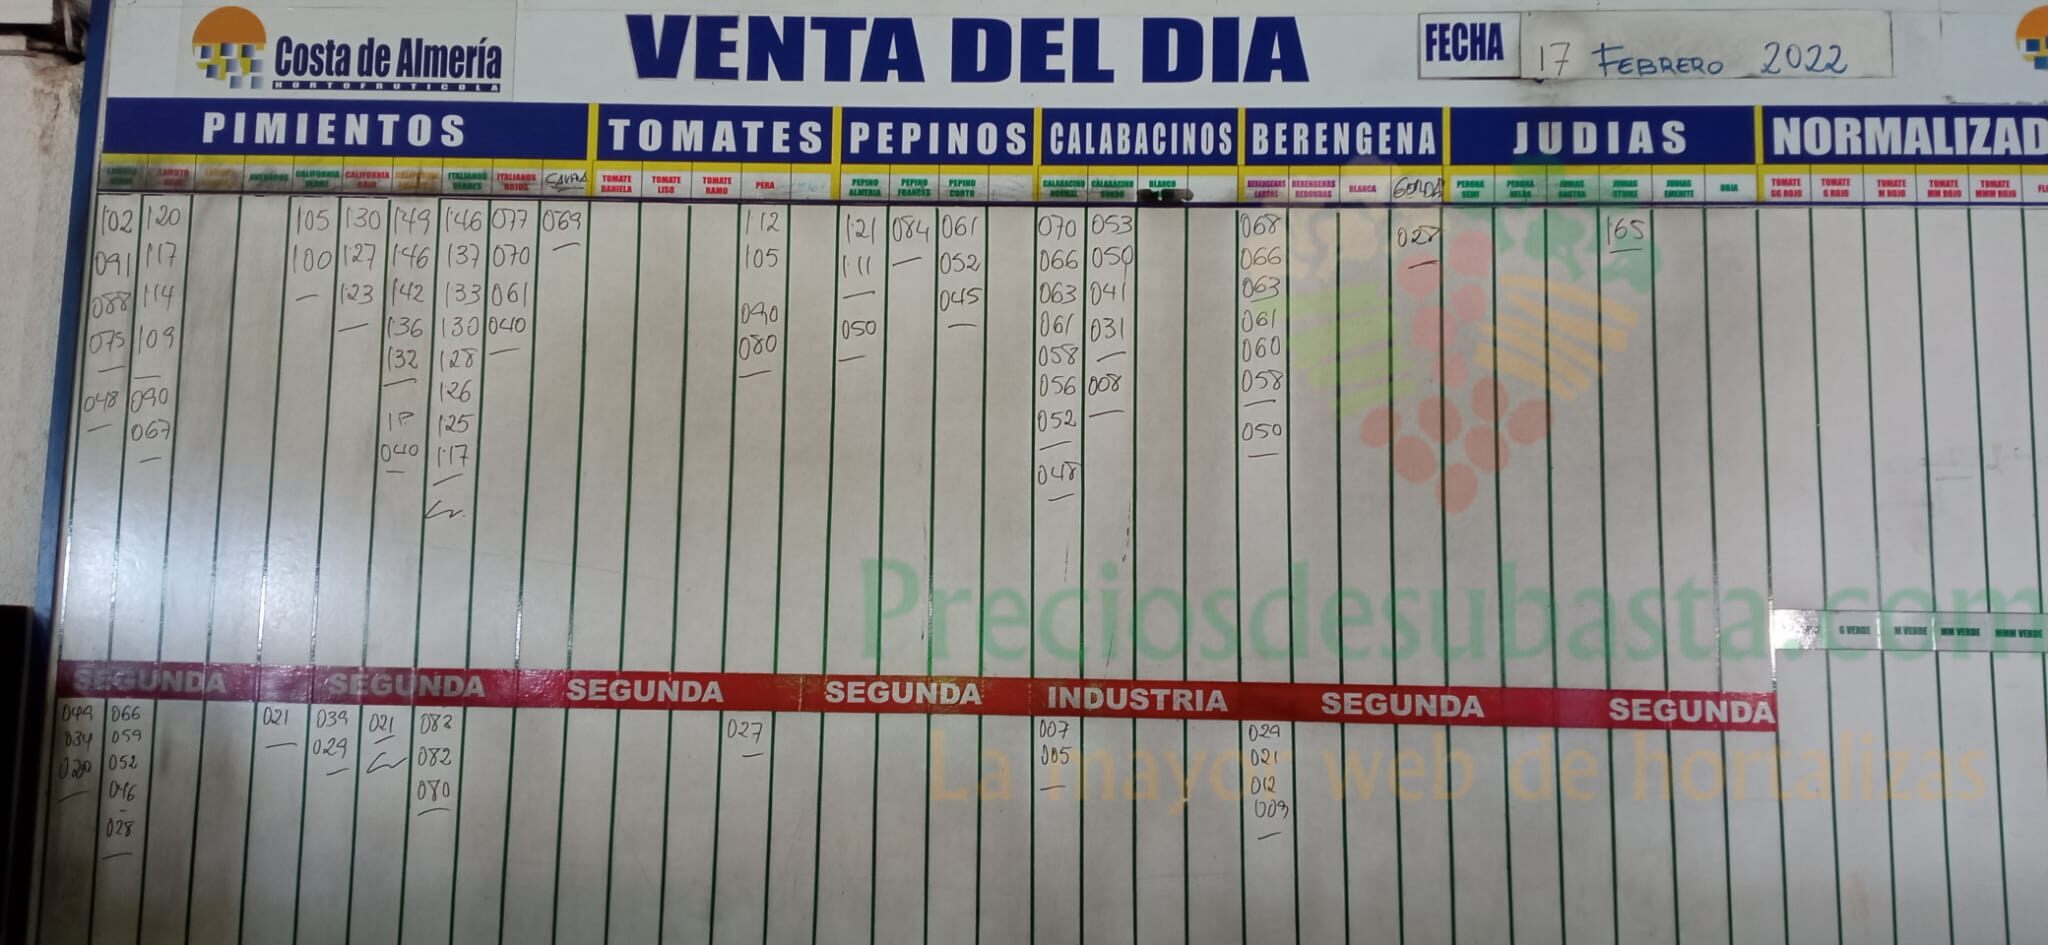 Costa de Almería
HORTOFRUTICOLA
VENTA DEL DIA
FECHA 17 FEBRERO 2022
PIMIENTOS TOMATES PEPINOS CALABACINOS BERENGENA JUDIAS NORMALIZAD
LAMUYO ROJO CALIFORNIA VERDE CALIFORNIA ROJO ITALIANOS VERDES ITALIANOS ROJOS TOMATE DANIELA TOMATE LISO TOMATE RAMO PERA PEPINO ALMERIA PEPINO FRANCES PEPINO CORTO CALABACINO CALABACINO BLANCO BERENGENAS LARGAS BERENGENAS REDONDAS BLANCA GORDA PERONA SEMI PERONA JUDIAS JUDIAS STRIKE JUDIAS EMERITE ROJA TOMATE GG ROJO TOMATE G ROJO TOMATE M ROJO TOMATE MM ROJO TOMATE MMM ROJO
102 120 105 130 149 146 077 069 112 121 084 061 070 053 068 028 165
091 117 100 127 146 137 070 105 111 052 066 050 066
088 114 123 142 133 061 090 050 045 063 041 063
075 109 136 130 040 080 061 031 061
048 090 132 128 058 008 060
067 1P 126 056 058
040 125 052 050
117 048
Preciosdesubasta.com
G VERDE M VERDE MM VERDE MMM VERDE
SEGUNDA SEGUNDA SEGUNDA SEGUNDA INDUSTRIA SEGUNDA SEGUNDA
049 066 021 039 021 082 027 007 029
034 059 029 082 005 021
020 052 080 012
046 009
028
La mayor web de hortalizas